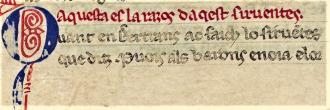 aquesta es la razos daqest siruentes.
Quant en Bertrans ac faich lo siruētes
que diz. Puois als barons enoia e lor